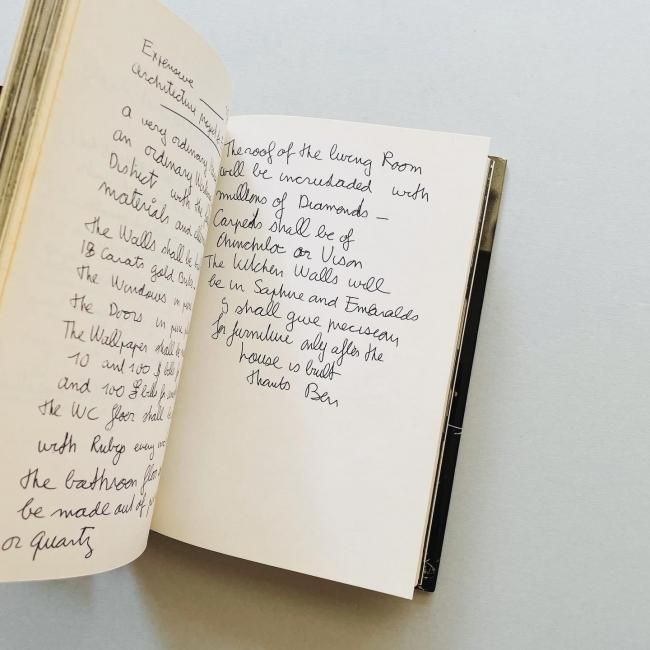 Expensive
architecture
a very ordinary
an ordinary
District with the
materials and
the Walls shall be
18 Carats gold
the Windows in
the Doors in pure
The Wallpaper shall be
10 and 100 $ bills
and 100 £ bills for
the WC floor shall
with Rubys every
the bathroom floor
be made out of
or quartz
The roof of the living Room
will be incrustaded with
millions of Diamonds —
Carpeds shall be of
Chinchila or Vison
The Kitchen Walls will
be in Saphire and Emeralds
y shall give precision
for furniture only after the
house is built
thanks Ben